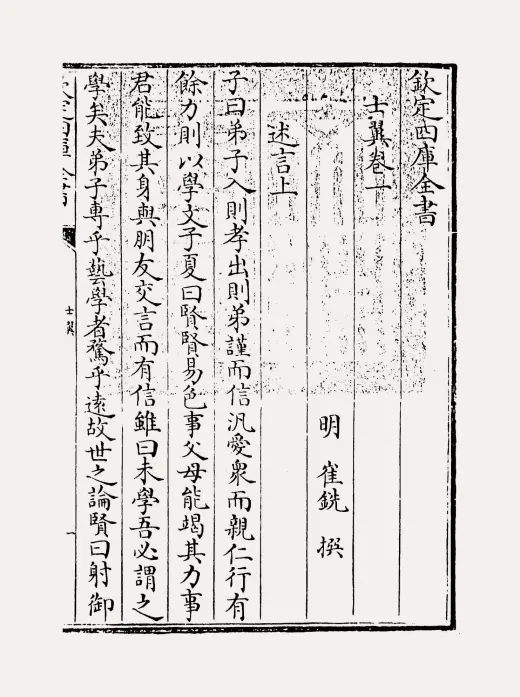 欽定四庫全書
士翼卷一
明 崔銑 撰
述言上
子曰弟子入則孝出則弟謹而信汎愛衆而親仁行有
餘力則以學文子夏曰賢賢易色事父母能竭其力事
君能致其身與朋友交言而有信雖曰未學吾必謂之
學矣夫弟子專乎藝學者騖乎遠故世之論賢曰射御
欽定四庫全書
士翼
一